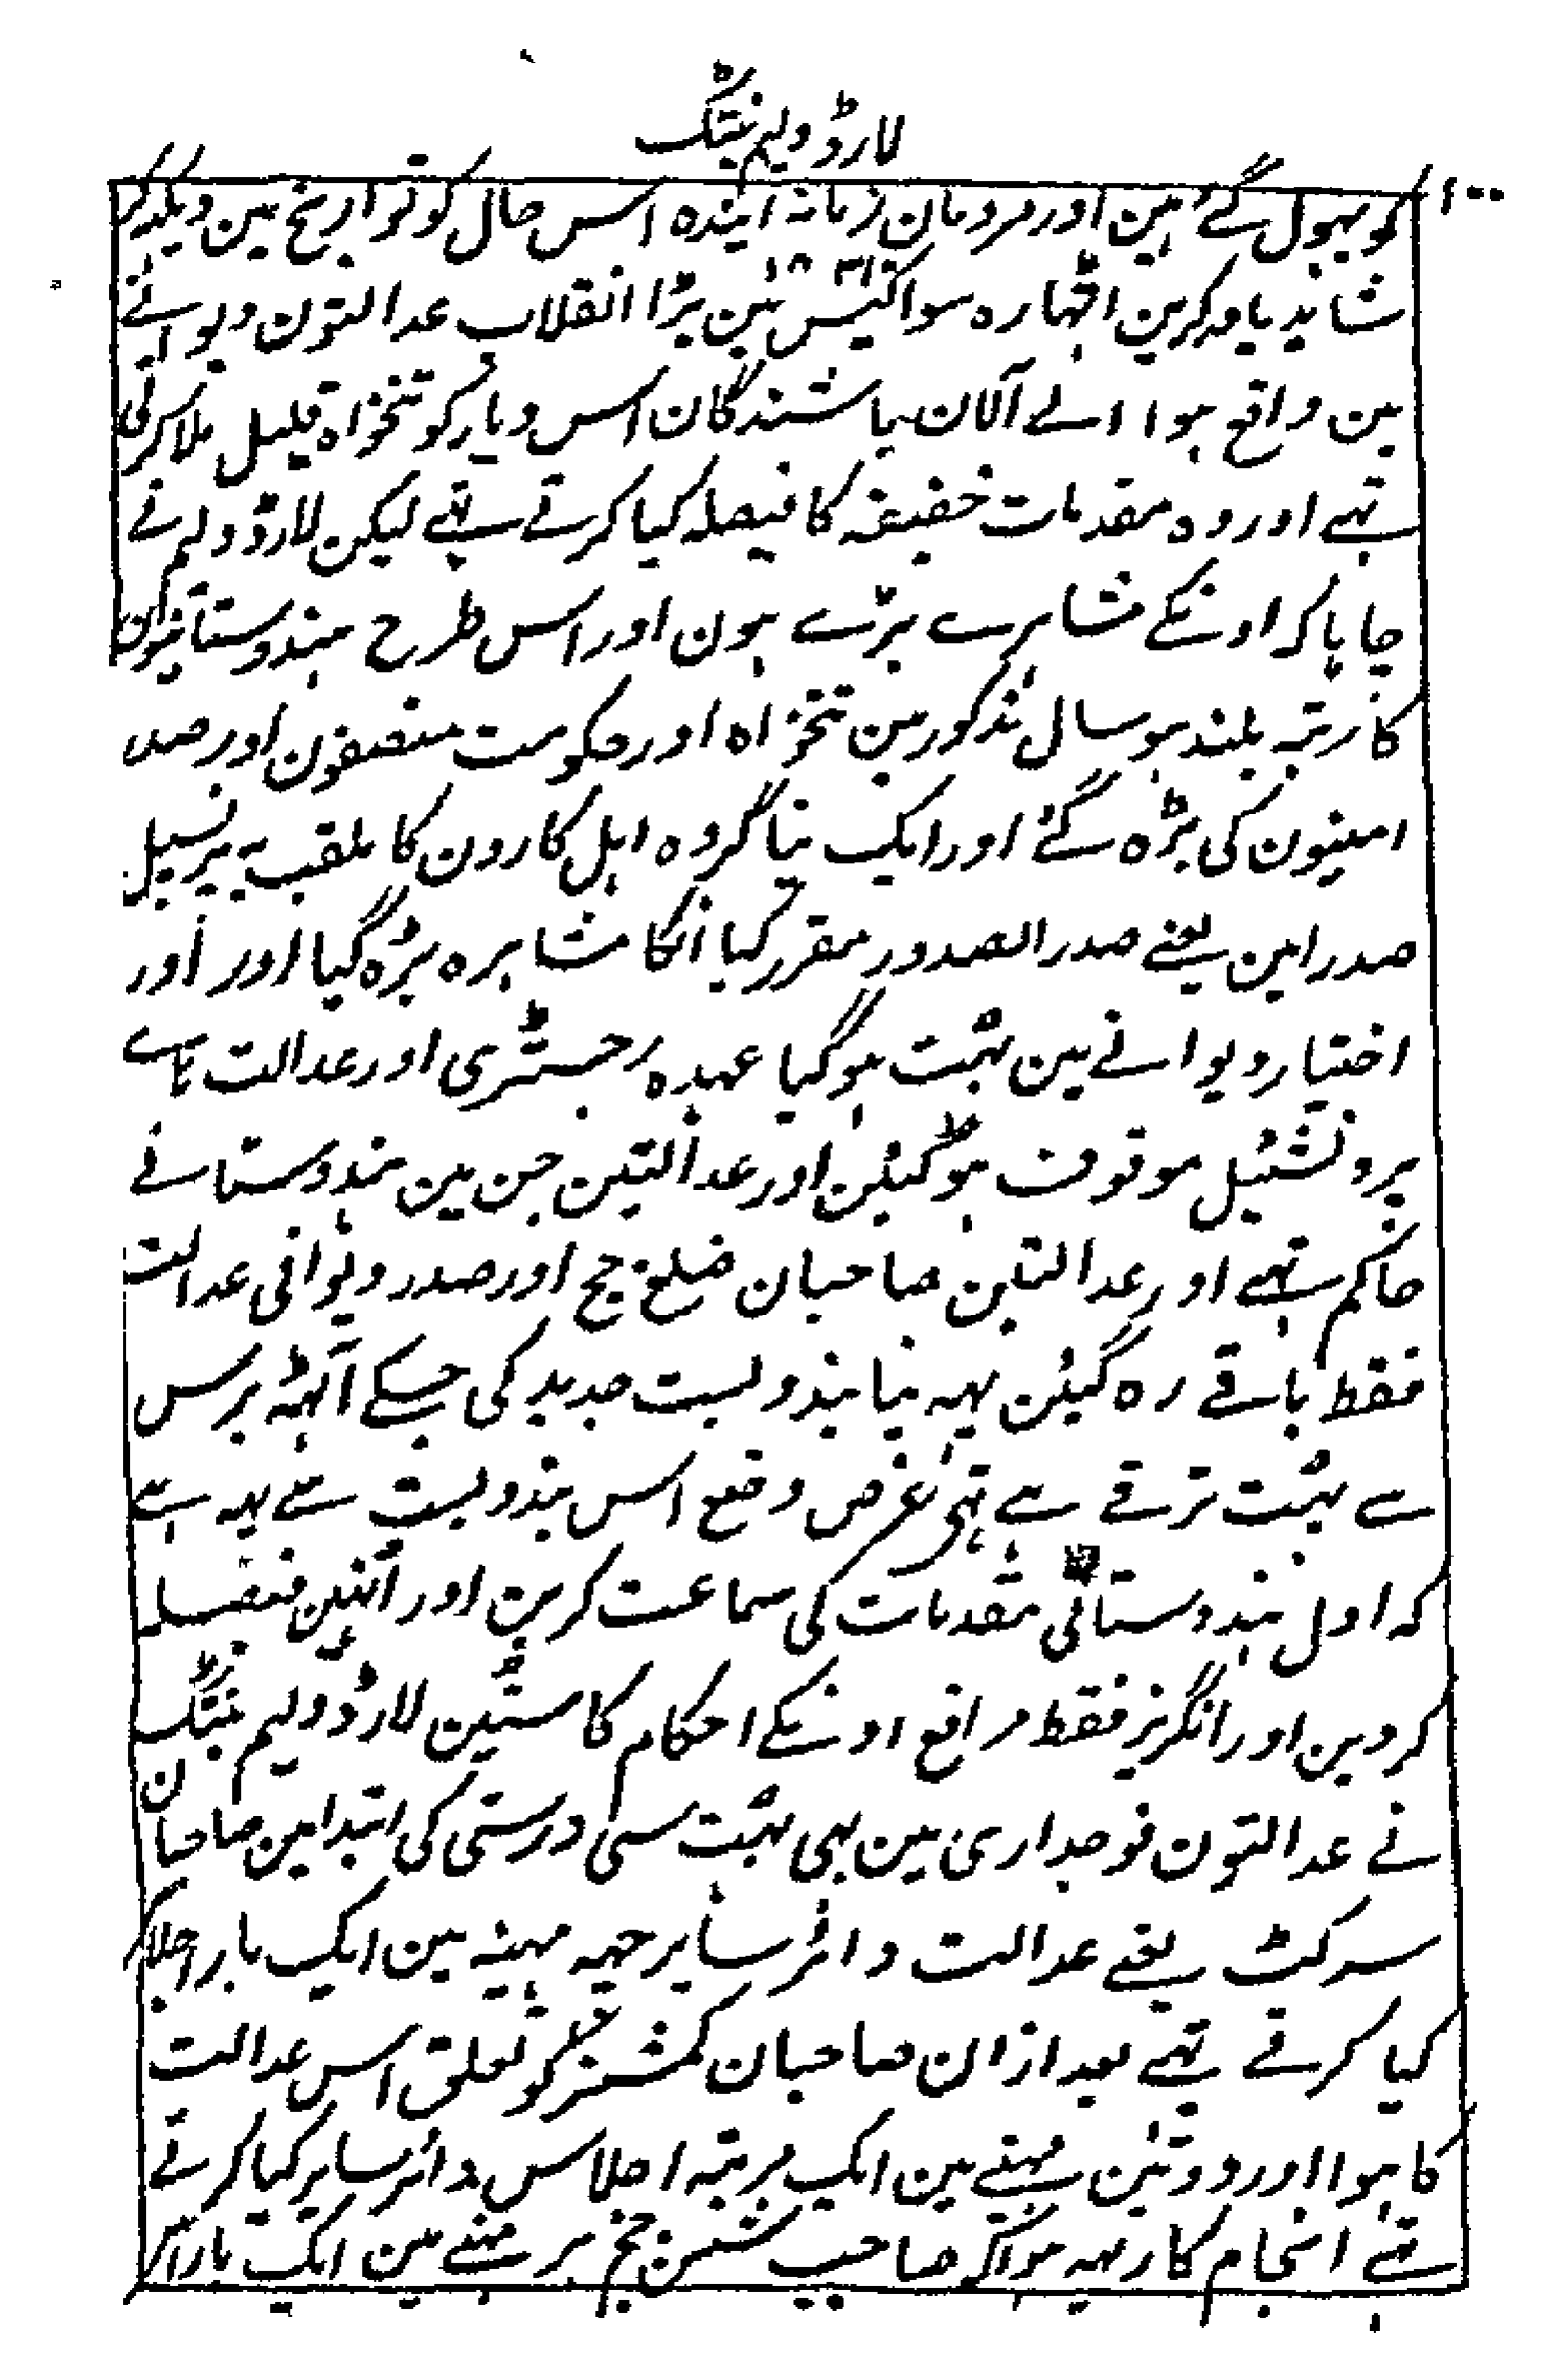 لارڈ ولیم بنٹنگ
۱۰۰
کو بہول گئے ہین اور مردمان زمانہ ایندہ اس حال کو تواریخ مین دیکہکر
شاید باور کرین اٹہارہ سو اکتیس ۱۸۳۱ مین بڑا انقلاب عدالتون دیوانے
مین واقع ہوا الے آلان باشندگان اس دیار کو تنخواہ قلیل ملا کرتی
تہے اور وہ مقدمات خفیفہ کا فیصلہ کیا کرتے تہے لیکن لارڈ ولیم نے
چاہا کہ اونکے مشاہرے بڑے ہون اور اس طرح ہندوستانیون
کا رتبہ بلند ہو سال مذکور مین تنخواہ اور حکومت منصفون اور صدر
امینون کی بڑہ گئے اور ایک نیا گروہ اہل کارون کا ملقب بہ پرنسپل
صدر امین یعنے صدر الصدور مقرر کیا انکا مشاہرہ بڑہ گیا اور اور
اختیار دیوانے مین بہت ہو گیا عہدہ رجسٹری اور عدالت ہاے
پرونشئیل موقوف ہو گئین اور عدالتین جن مین ہندوستانے
حاکم تہے اور عدالتین صاحبان ضلع جج اور صدر دیوانی عدالت
فقط باقے رہ گئین یہہ نیا بندوبست جدید کی جسکے آٹہہ برس
سے بہت ترقے ہے تہی غرض وضع اس بندوبست سے یہہ ہے
کہ اول ہندوستانی مقدمات کی سماعت کرین اور انہین فیصلہ
کر دین اور انگریز فقط مرافع اونکے احکام کا سنین لارڈ ولیم بنٹنگ
نے عدالتون فوجداری مین بہی بہت سی درستی کی ابتدا مین صاحبان
سرکٹ یعنے عدالت دائر سایر چہہ مہینہ مین ایک بار اجلاس
کیا کرتے تہے بعد ازان صاحبان کمشنر کو تعلق اس عدالت
کا ہوا اور دو تین مہینے مین ایک مرتبہ اجلاس دائر سایر کیا کرتے
تہے انجام کار یہہ ہوا کہ صاحب شسن جج ہر مہنے مین ایک بار اس